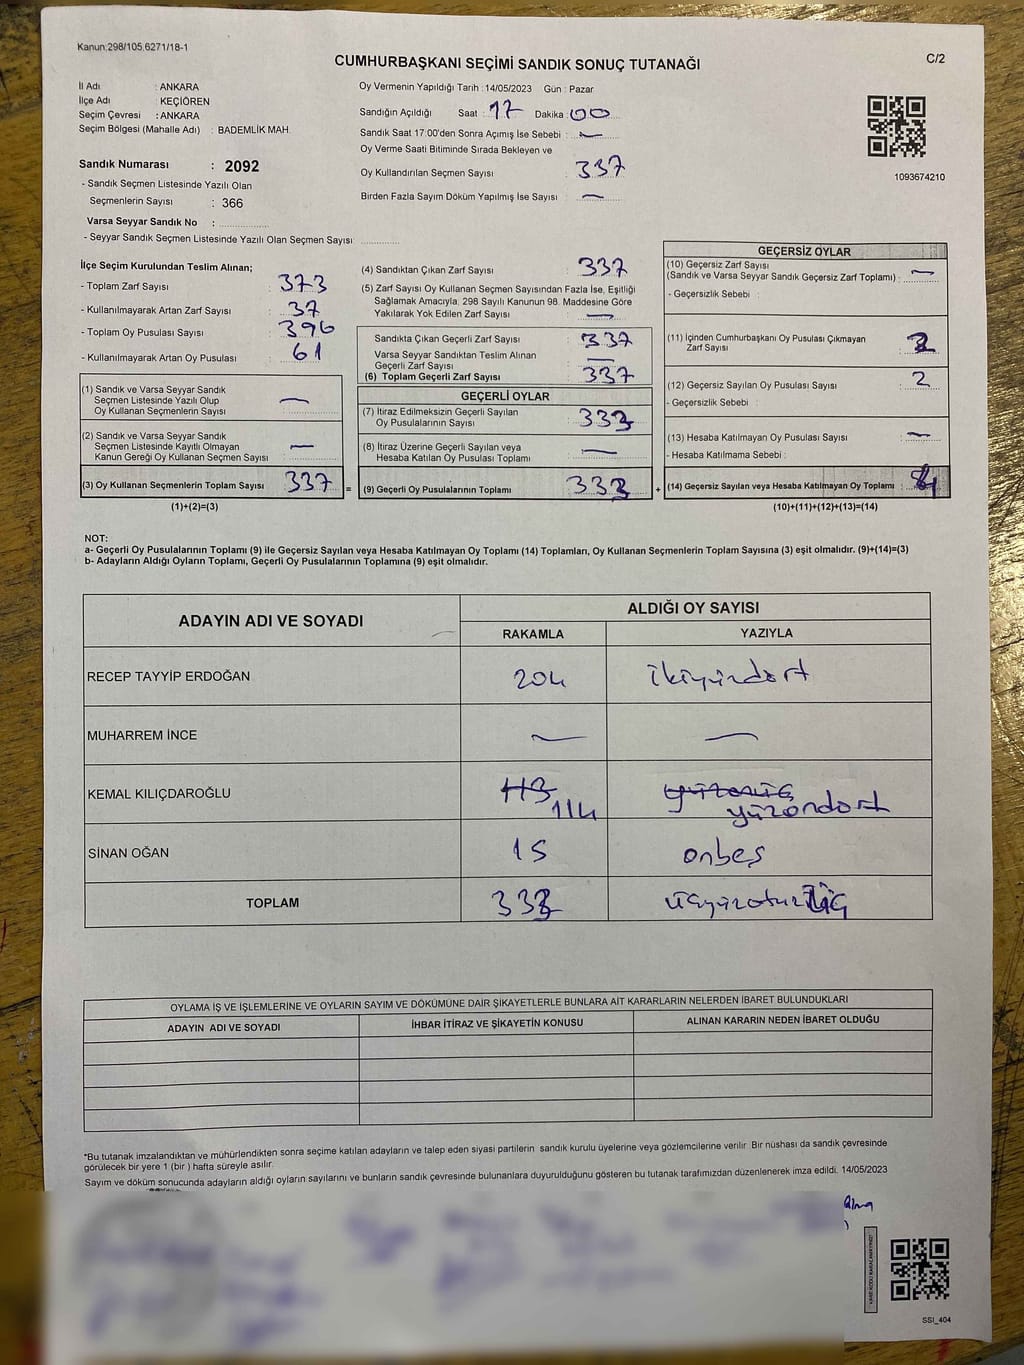 Kanun:298/105,6271/18-1
C/2
CUMHURBAŞKANI SEÇİMİ SANDIK SONUÇ TUTANAĞI
İl Adı : ANKARA
İlçe Adı : KEÇİÖREN
Seçim Çevresi : ANKARA
Seçim Bölgesi (Mahalle Adı) : BADEMLİK MAH.
Oy Vermenin Yapıldığı Tarih : 14/05/2023 Gün : Pazar
Sandığın Açıldığı Saat : 17 Dakika : 00
Sandık Saat 17:00'den Sonra Açımış İse Sebebi : —
Oy Verme Saati Bitiminde Sırada Bekleyen ve
Oy Kullandırılan Seçmen Sayısı : 337
Birden Fazla Sayım Döküm Yapılmış İse Sayısı : —
1093674210
Sandık Numarası : 2092
- Sandık Seçmen Listesinde Yazılı Olan
Seçmenlerin Sayısı : 366
Varsa Seyyar Sandık No :
- Seyyar Sandık Seçmen Listesinde Yazılı Olan Seçmen Sayısı
İlçe Seçim Kurulundan Teslim Alınan;
- Toplam Zarf Sayısı : 373
- Kullanılmayarak Artan Zarf Sayısı : 37
- Toplam Oy Pusulası Sayısı : 396
- Kullanılmayarak Artan Oy Pusulası : 61
(1) Sandık ve Varsa Seyyar Sandık
Seçmen Listesinde Yazılı Olup
Oy Kullanan Seçmenlerin Sayısı : —
(2) Sandık ve Varsa Seyyar Sandık
Seçmen Listesinde Kayıtlı Olmayan
Kanun Gereği Oy Kullanan Seçmen Sayısı : —
(3) Oy Kullanan Seçmenlerin Toplam Sayısı : 337 =
(1)+(2)=(3)
(4) Sandıktan Çıkan Zarf Sayısı : 337
(5) Zarf Sayısı Oy Kullanan Seçmen Sayısından Fazla İse, Eşitliği
Sağlamak Amacıyla, 298 Sayılı Kanunun 98. Maddesine Göre
Yakılarak Yok Edilen Zarf Sayısı : —
Sandıkta Çıkan Geçerli Zarf Sayısı : 337
Varsa Seyyar Sandıktan Teslim Alınan
Geçerli Zarf Sayısı : —
(6) Toplam Geçerli Zarf Sayısı : 337
GEÇERLİ OYLAR
(7) İtiraz Edilmeksizin Geçerli Sayılan
Oy Pusulalarının Sayısı : 333
(8) İtiraz Üzerine Geçerli Sayılan veya
Hesaba Katılan Oy Pusulası Toplamı : —
(9) Geçerli Oy Pusulalarının Toplamı : 333 +
GEÇERSİZ OYLAR
(10) Geçersiz Zarf Sayısı
(Sandık ve Varsa Seyyar Sandık Geçersiz Zarf Toplamı) : —
- Geçersizlik Sebebi :
(11) İçinden Cumhurbaşkanı Oy Pusulası Çıkmayan
Zarf Sayısı : 2
(12) Geçersiz Sayılan Oy Pusulası Sayısı : 2
- Geçersizlik Sebebi :
(13) Hesaba Katılmayan Oy Pusulası Sayısı : —
- Hesaba Katılmama Sebebi :
(14) Geçersiz Sayılan veya Hesaba Katılmayan Oy Toplamı : 4
(10)+(11)+(12)+(13)=(14)
NOT:
a- Geçerli Oy Pusulalarının Toplamı (9) ile Geçersiz Sayılan veya Hesaba Katılmayan Oy Toplamı (14) Toplamları, Oy Kullanan Seçmenlerin Toplam Sayısına (3) eşit olmalıdır. (9)+(14)=(3)
b- Adayların Aldığı Oyların Toplamı, Geçerli Oy Pusulalarının Toplamına (9) eşit olmalıdır.
ADAYIN ADI VE SOYADI ALDIĞI OY SAYISI
RAKAMLA YAZIYLA
RECEP TAYYİP ERDOĞAN 204 ikiyüzdört
MUHARREM İNCE — —
KEMAL KILIÇDAROĞLU 113 yüzonüç
114 yüzondört
SİNAN OĞAN 15 onbeş
TOPLAM 333 üçyüzotuzüç
OYLAMA İŞ VE İŞLEMLERİNE VE OYLARIN SAYIM VE DÖKÜMÜNE DAİR ŞİKAYETLERLE BUNLARA AİT KARARLARIN NELERDEN İBARET BULUNDUKLARI
ADAYIN ADI VE SOYADI İHBAR İTİRAZ VE ŞİKAYETİN KONUSU ALINAN KARARIN NEDEN İBARET OLDUĞU
*Bu tutanak imzalandıktan ve mühürlendikten sonra seçime katılan adayların ve talep eden siyasi partilerin sandık kurulu üyelerine veya gözlemcilerine verilir. Bir nüshası da sandık çevresinde
görülecek bir yere 1 (bir ) hafta süreyle asılır.
Sayım ve döküm sonucunda adayların aldığı oyların sayılarını ve bunların sandık çevresinde bulunanlara duyurulduğunu gösteren bu tutanak tarafımızdan düzenlenerek imza edildi. 14/05/2023
SSI_404